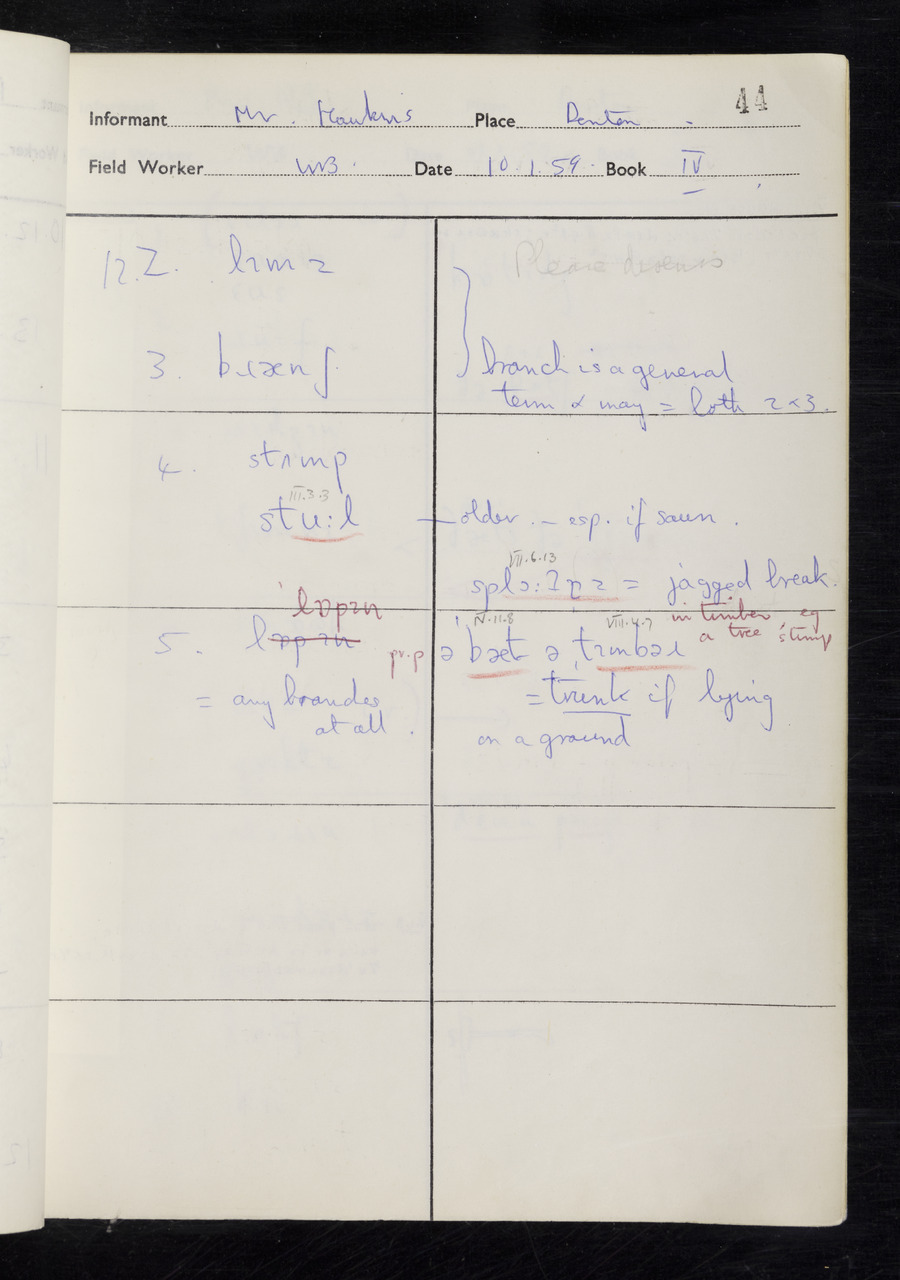 44
Informant Mr. Hawkins Place Denton
Field Worker WB. Date 10.1.59. Book IV
12. 2. lɪmz
3. bɹænʃ.
branch is a general
term & may = both 2 & 3.
4. stʌmp
III.3.3
stu:l — older. — esp. if sawn.
VII.6.13
splɔ:ʔpz = jagged break.
in timber, eg
a tree stump
lɒpɪn
5. lɒpɪn
= any branches
at all.
pr.p
IV.11.8 VIII.4.7
ə bæt ə tɪmbəɹ
= trunk if lying
on a ground